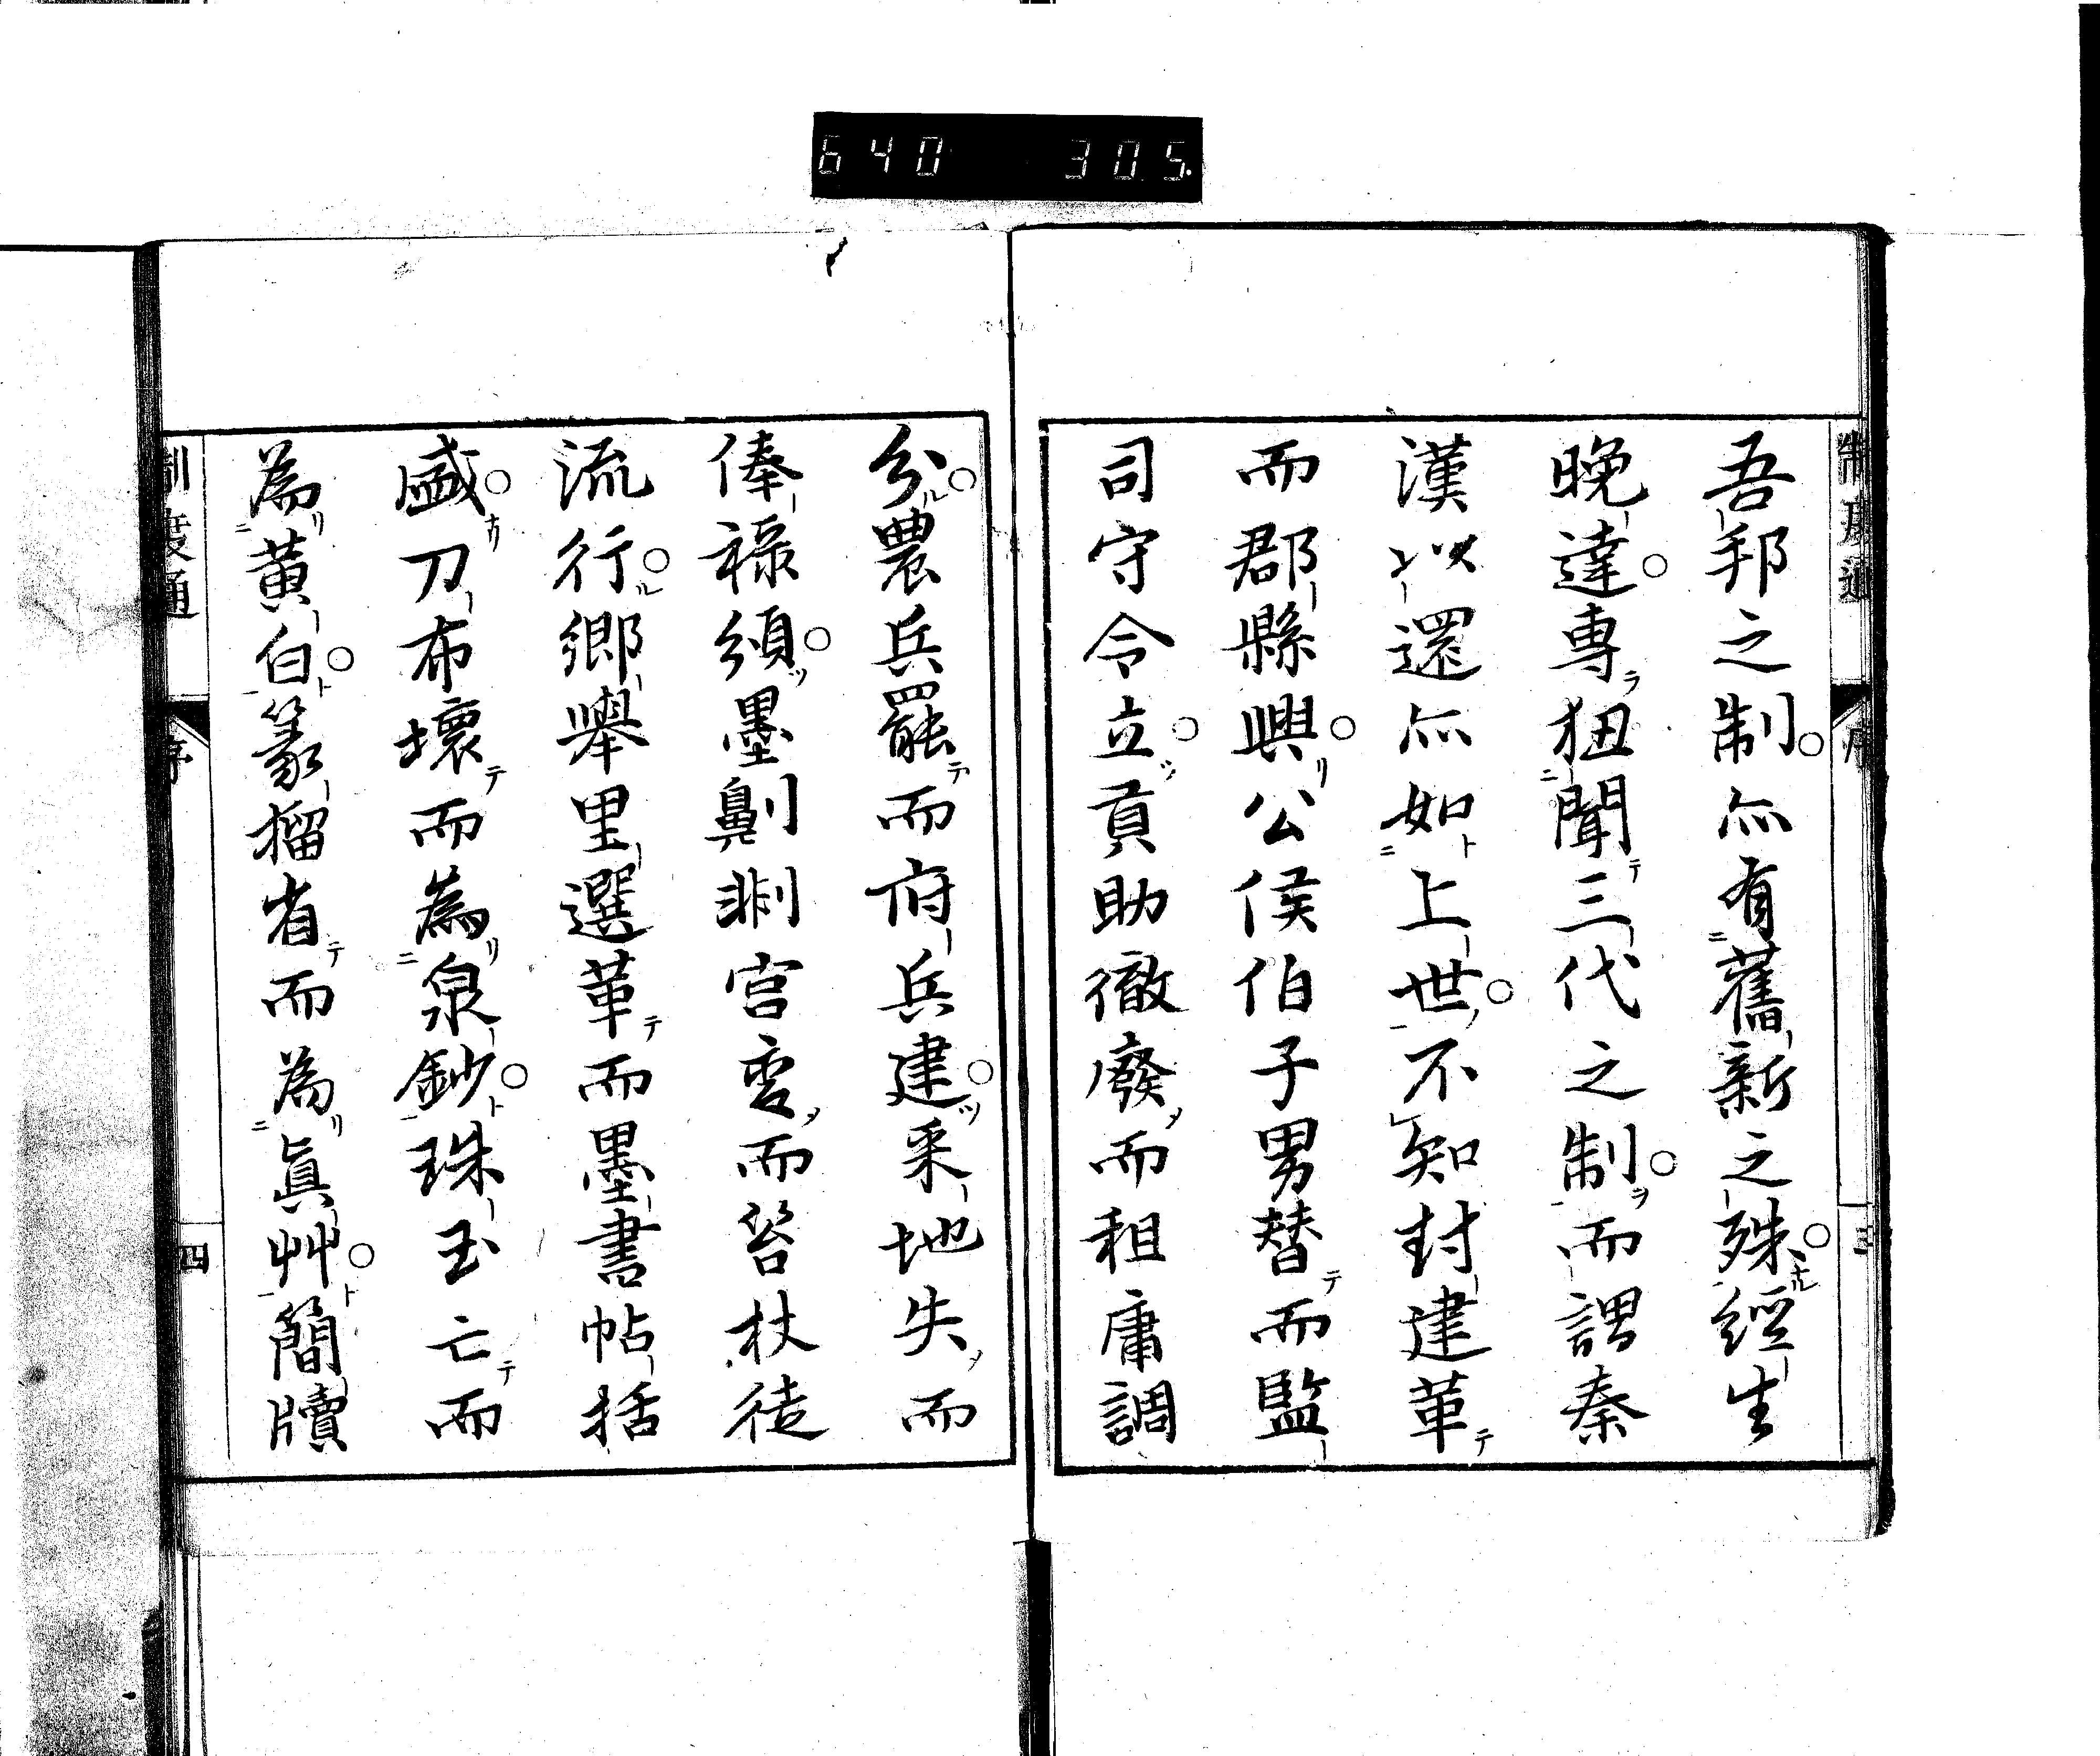 640 305
制度通 序 三
吾邦之制亦有舊新之殊經生
晚達專狃聞三代之制而謂秦
漢以還亦如上世不知封建革
而郡縣興公侯伯子男替而監
司守令立貢助徹廢而租庸調
分農兵罷而府兵建采地失而
俸祿頒墨劓剕宮变而笞杖徒
流行鄉舉里選革而墨書帖括
盛刀布壞而為泉鈔珠玉亡而
為黃白篆籀省而為眞艸簡牘
制度通 序 四